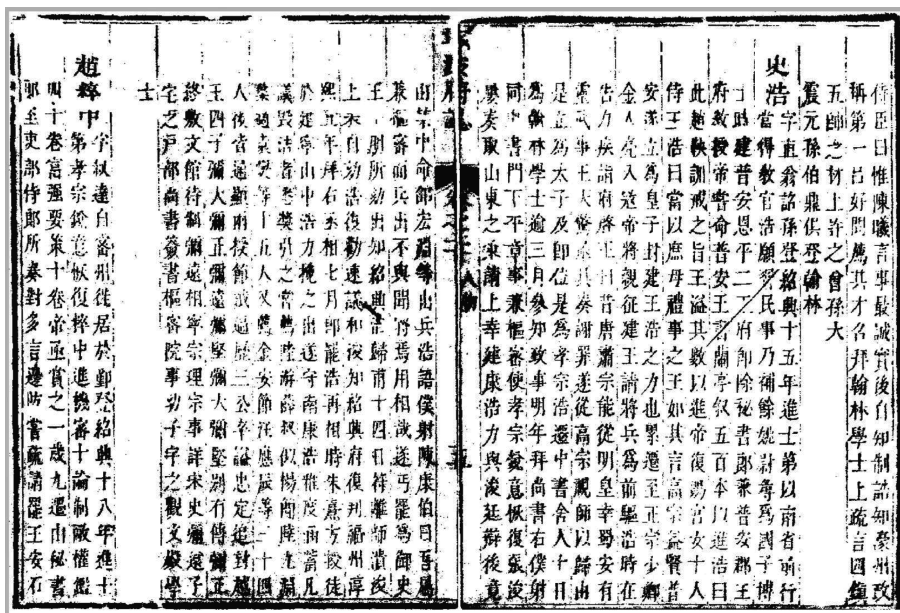 侍臣曰惟陳曦言事最誠實後自知制誥知豪州改
稱第一呂好問薦其才名拜翰林學士上疏言四鎮
五帥之材上許之曾孫大
震元孫伯鼎俱登翰林
史浩 字直翁詔孫登紹興十五年進士第以南省前行
當得教官浩願習民事乃補餘姚尉尋爲國子博
士時建普安恩平二王府卽除祕書郎兼普安郡王
府教授帝嘗命普安王書蘭亭叙五百本以進浩曰
此趙鞅訓戒之旨王溢其數以進帝復賜宮女十人
侍王浩曰當以庶母禮事之王如其言高宗益賢普
安遂立爲皇子封建王浩之力也累遷至正宗少卿
金人亮入寇帝將親征建王請將兵爲前驅浩時在
告力疾詣府啓王曰昔唐肅宗能從明皇幸蜀安有
靈武事王大驚亟具奏謝罪遂從高宗視師以歸由
是立爲太子及卽位是爲孝宗遷中書舍人十日
爲翰林學士逾三月參知政事明年拜尚書右僕射
同中書門下平章事兼樞密使孝宗銳意恢復張浚
屢奏取山東之東請上幸建康浩力與浚廷辯後竟
卷之 人物 五
由某中命部宏淵等出兵浩語僕射陳康伯曰吾屬
兼樞密而兵出不與聞將焉用相哉遂丐罷爲御史
王十朋所劾出知紹興歸甫十四日符離師潰浚
上表自劾浩復勸速議和後知紹興府復判福州淳
熙五年拜右丞相七月時朱熹方投徒
於建寧山中浩力挽之出遂守南康浩雅度函蓄凡
議毀浩者悉獎引之嘗薦陸游薛叔似楊簡陸九淵
葉適袁燮等十五人又薦金安節汪應辰等二十四
人後皆通顯府授節歷三公卒謚忠定追封越
王四子彌大彌堅彌大彌堅別有傳彌正
終敷文館待制彌遠相寧宗理宗事詳宋史彌遠子
宅之戶部尚書簽書樞密院事幼子宇之觀文殿學
士
趙粹中 字叔達自密州徙居於鄞登紹興十八年進士
第孝宗銳意恢復粹中進機密十論制敵權鑑
四十卷富强要策十卷帝亟賞之一歲九遷由祕書
郎至吏部侍郎所奏對多言邊防嘗疏請罷王安石